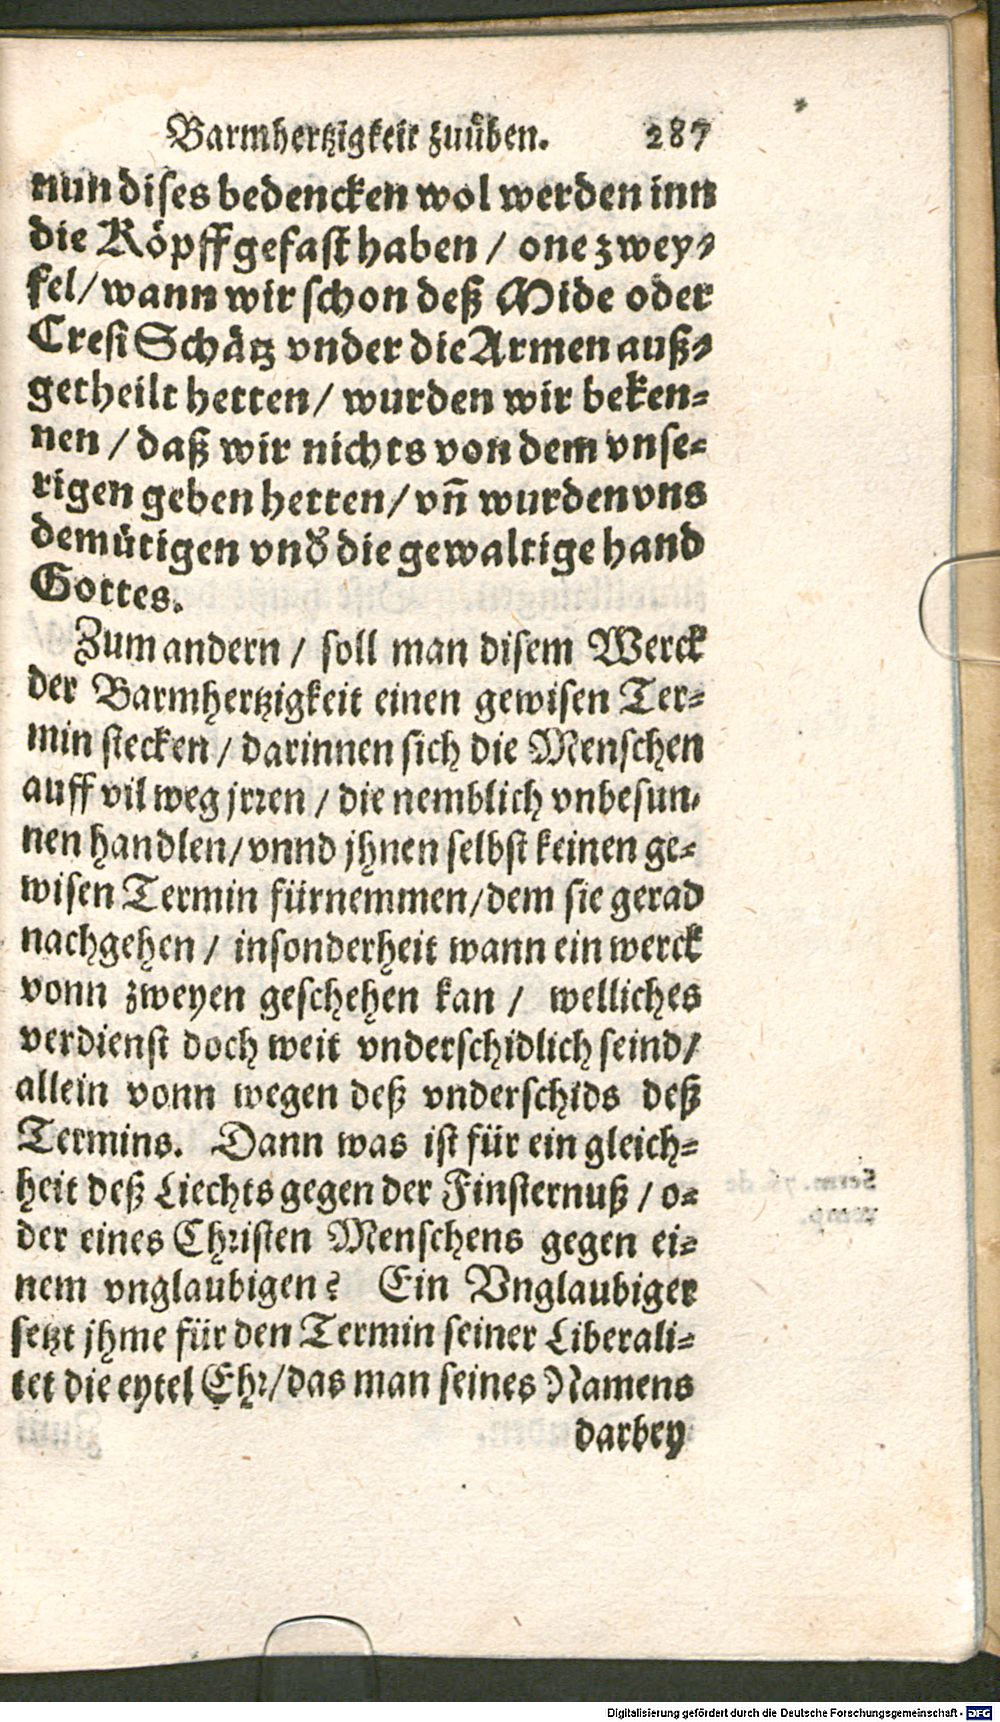 Barmhertzigkeit zuuͤben. 287
nun dises bedencken wol werden inn
die Köpff gefast haben / one zwey-
fel / wann wir schon deß Mide oder
Cresi Schätz vnder die Armen auß-
getheilt hetten / wurden wir beken-
nen / daß wir nichts von dem vnse-
rigen geben hetten / vñ wurden vns
demütigen vnd̕ die gewaltige hand
Gottes.
Zum andern / soll man disem Werck
der Barmhertzigkeit einen gewisen Ter-
min stecken / darinnen sich die Menschen
auff vil weg jrren / die nemblich vnbesun-
nen handlen / vnnd jhnen selbst keinen ge-
wisen Termin fürnemmen / dem sie gerad
nachgehen / insonderheit wann ein werck
vonn zweyen geschehen kan / welliches
verdienst doch weit vnderschidlich seind /
allein vonn wegen deß vnderschids deß
Termins. Dann was ist für ein gleich-
heit deß Liechts gegen der Finsternuß / o-
der eines Christen Menschens gegen ei-
nem vnglaubigen? Ein Vnglaubiger
setzt jhme für den Termin seiner Liberali-
tet die eytel Ehr / das man seines Namens
darbey
Digitalisierung gefördert durch die Deutsche Forschungsgemeinschaft - DFG